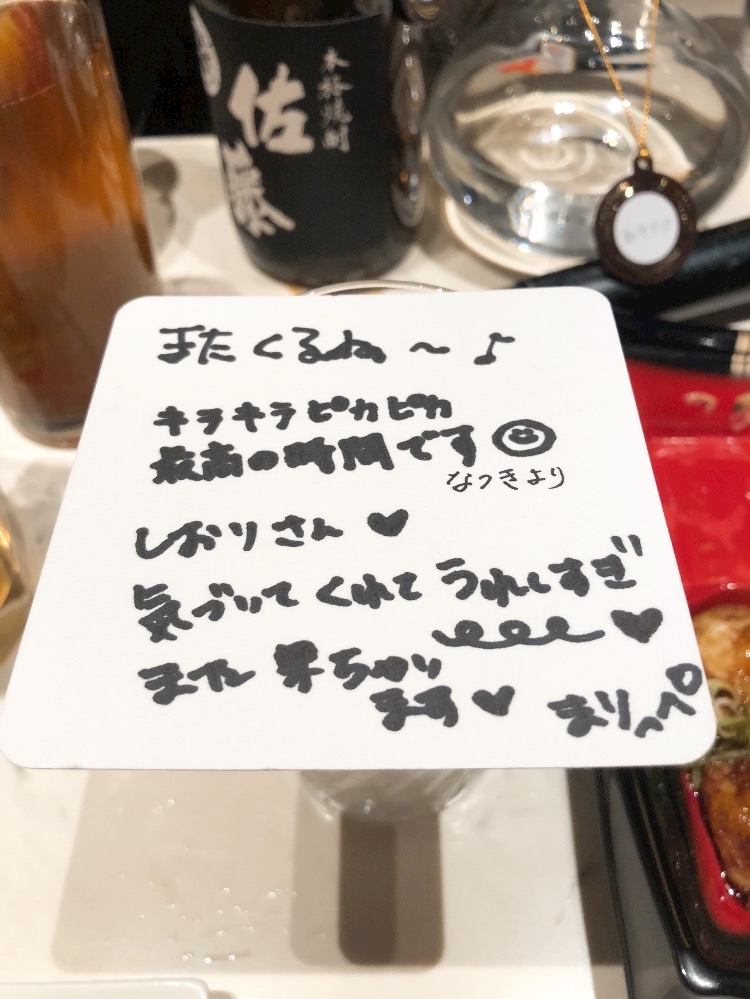 本格焼酎
佐藤
またくるね〜♪
キラキラピカピカ
最高の時間です
なつきより
しおりさん♥
気づいてくれてうれしすぎ
♥
また来ちゃい
ます♥
まりっぺ